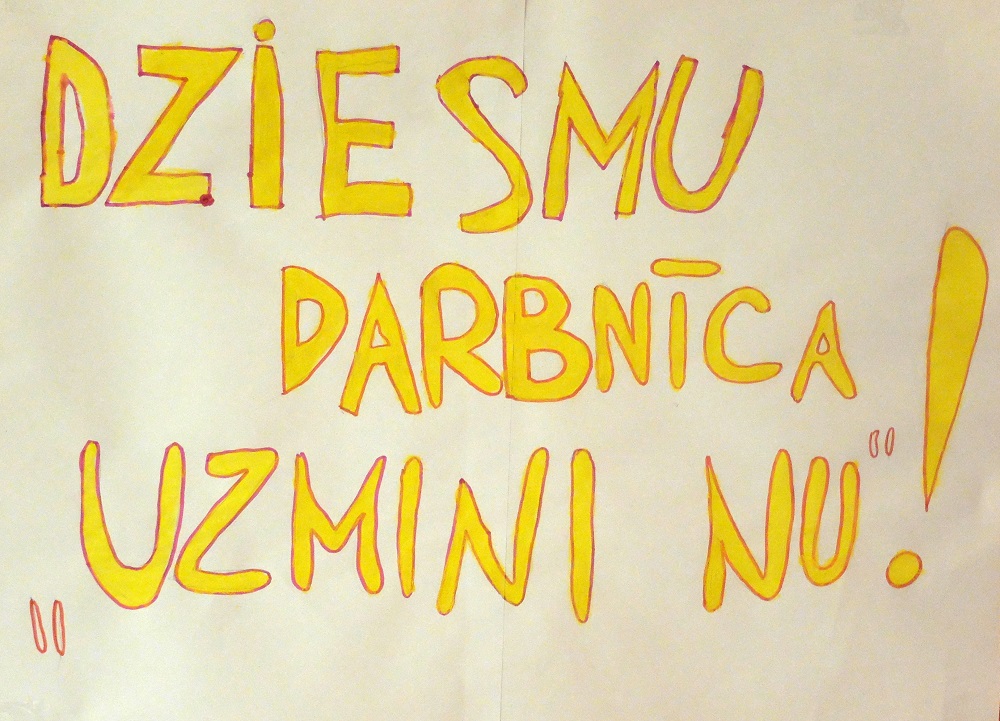 DZiESMU
DARBNĪCA
"UZMINI NU"!